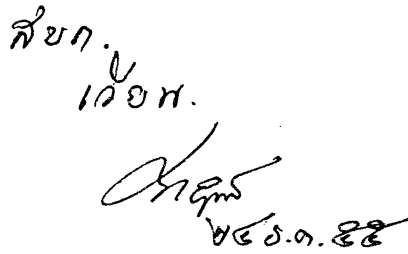 สบก.
เวียน.
๒๔ ธ.ค. ๕๕